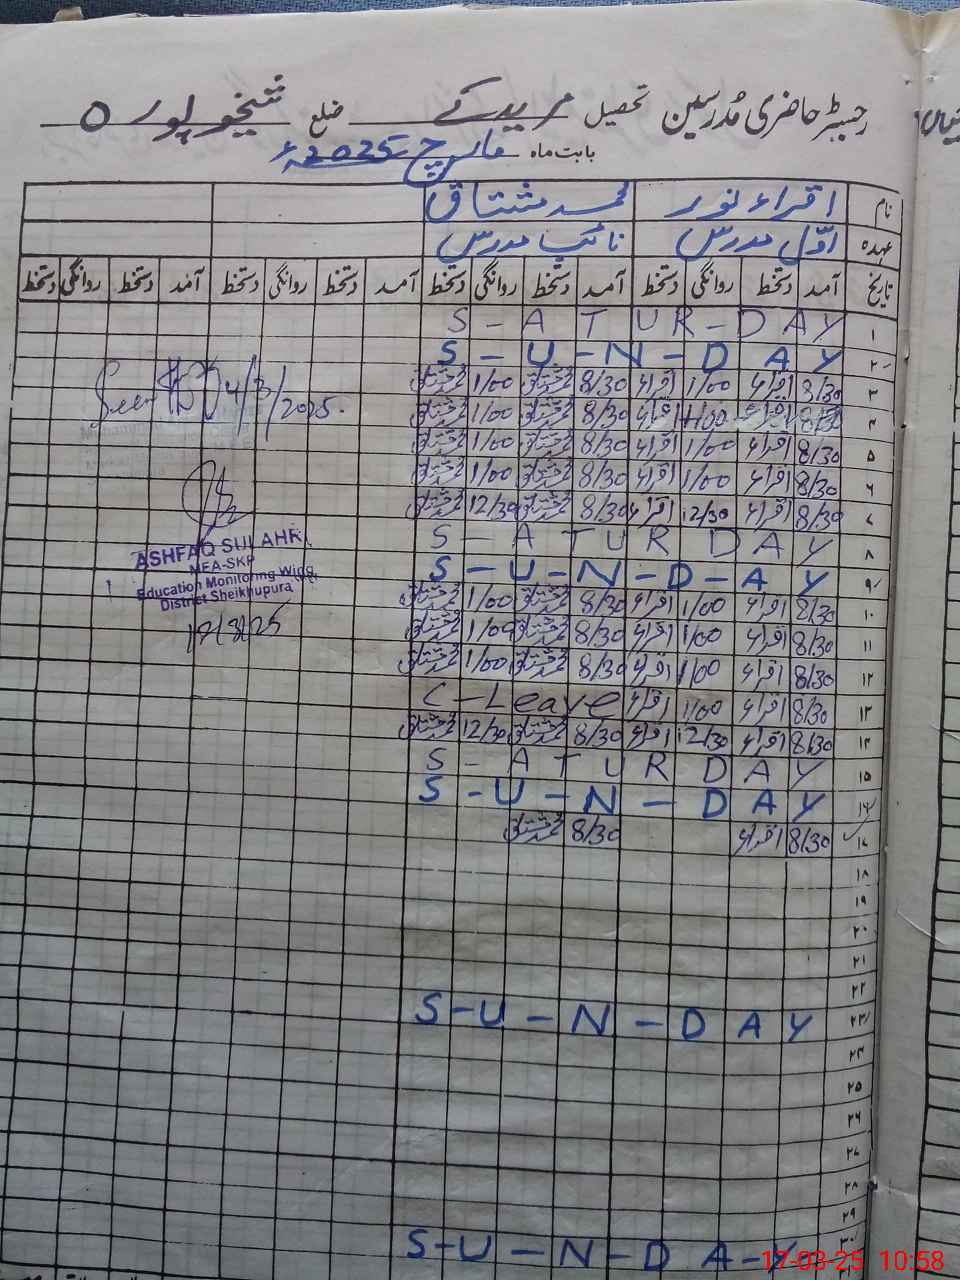 رجسٹر حاضری مُدرسین تحصیل مریدکے ضلع شیخوپورہ
بابت ماہ مارچ 2025ء
نام اقراء نور محمد مشتاق
عہدہ اوّل مدرس نائب مدرس
تاریخ آمد دستخط روانگی دستخط آمد دستخط روانگی دستخط آمد دستخط روانگی دستخط آمد دستخط روانگی دستخط
۱ S-ATUR-DAY
۲ S-U-N-DAY
۳ 8/30 اقراء 1/00 اقراء 8/30 محمد مشتاق 1/00 محمد مشتاق
۴ 8/30 اقراء 1/00 اقراء 8/30 محمد مشتاق 1/00 محمد مشتاق
Seen 4/3/2025.
۵ 8/30 اقراء 1/00 اقراء 8/30 محمد مشتاق 1/00 محمد مشتاق
۶ 8/30 اقراء 1/00 اقراء 8/30 محمد مشتاق 1/00 محمد مشتاق
۷ 8/30 اقراء 12/30 اقراء 8/30 محمد مشتاق 12/30 محمد مشتاق
۸ S-ATURDAY
۹ S-U-N-D-AY
ASHFAQ SULAHRI
MEA-SKP
Education Monitoring Wing
District Sheikhupura
17/3/25
۱۰ 8/30 اقراء 1/00 اقراء 8/30 محمد مشتاق 1/00 محمد مشتاق
۱۱ 8/30 اقراء 1/00 اقراء 8/30 محمد مشتاق 1/00 محمد مشتاق
۱۲ 8/30 اقراء 1/00 اقراء 8/30 محمد مشتاق 1/00 محمد مشتاق
۱۳ 8/30 اقراء 1/00 اقراء C-Leave
۱۴ 8/30 اقراء 12/30 اقراء 8/30 محمد مشتاق 12/30 محمد مشتاق
۱۵ S-ATURDAY
۱۶ S-U-N-DAY
۱۷ 8/30 اقراء 8/30 محمد مشتاق
۱۸
۱۹
۲۰
۲۱
۲۲
۲۳ S-U-N-DAY
۲۴
۲۵
۲۶
۲۷
۲۸
۲۹
۳۰ S-U-N-DA-Y
17-03-25 10:58